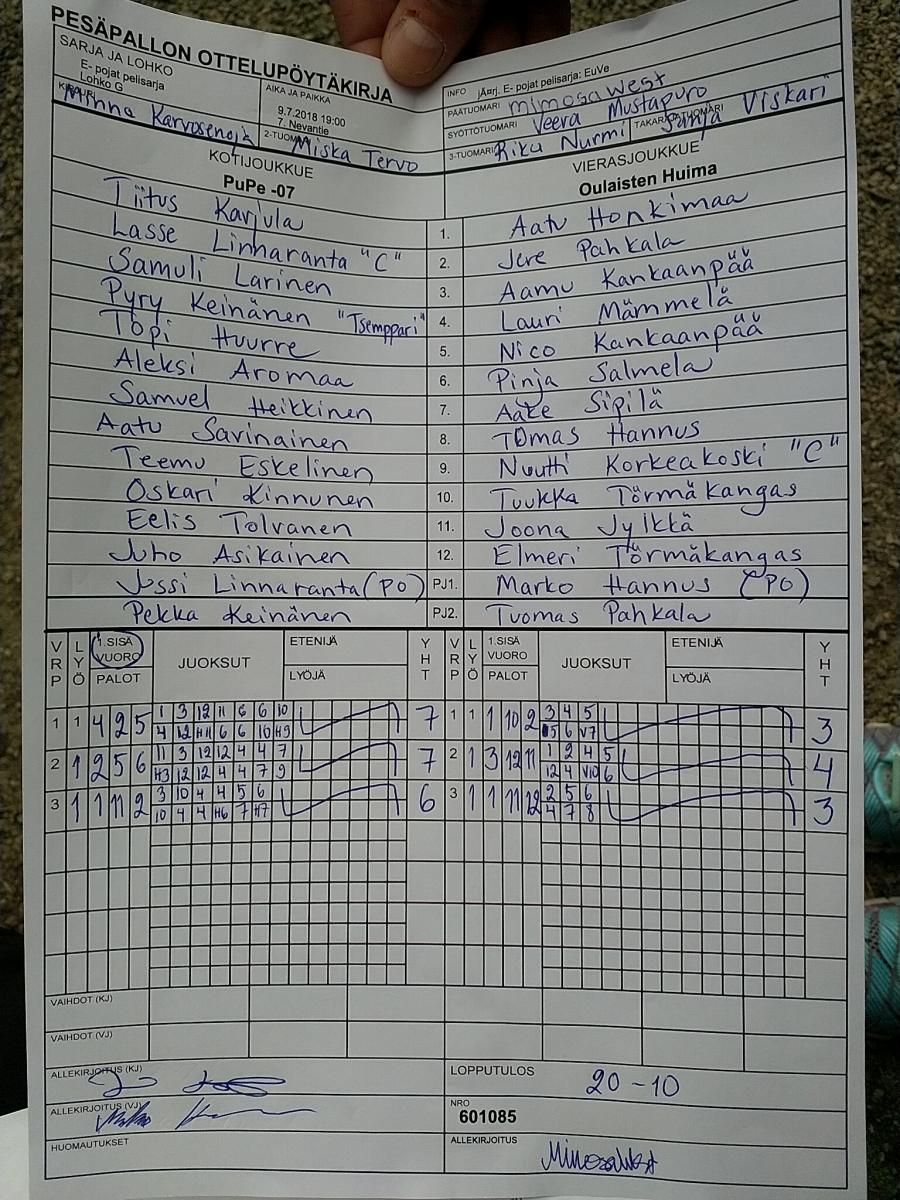 PESÄPALLON OTTELUPÖYTÄKIRJA
SARJA JA LOHKO
E- pojat pelisarja
Lohko G
AIKA JA PAIKKA
9.7.2018 19:00
7. Nevantie
INFO jÄärj. E- pojat pelisarja: EuVe
PÄÄTUOMARI mimosa west
SYÖTTÖTUOMARI Veera Mustapuro
KIRJURI Minna Karvosenoja
2-TUOMARI Miska Tervo
3-TUOMARI Riku Nurmi TAKARAJATUOMARI Sanja Viskari
KOTIJOUKKUE
PuPe -07
VIERASJOUKKUE
Oulaisten Huima
Tiitus Karjula 1. Aatu Honkimaa
Lasse Linnaranta "C" 2. Jere Pahkala
Samuli Larinen 3. Aamu Kankaanpää
Pyry Keinänen "Tsemppari" 4. Lauri Mämmelä
Topi Huurre 5. Nico Kankaanpää
Aleksi Aromaa 6. Pinja Salmela
Samuel Heikkinen 7. Aake Sipilä
Aatu Savinainen 8. Tomas Hannus
Teemu Eskelinen 9. Nuutti Korkeakoski "C"
Oskari Kinnunen 10. Tuukka Törmäkangas
Eelis Tolvanen 11. Joona Jylkkä
Juho Asikainen 12. Elmeri Törmäkangas
Jussi Linnaranta (PO) PJ1. Marko Hannus (PO)
Pekka Keinänen PJ2. Tuomas Pahkala
VRP LYÖ 1.SISÄ VUORO PALOT JUOKSUT ETENIJÄ LYÖJÄ YHT VRP LYÖ 1.SISÄ VUORO PALOT JUOKSUT ETENIJÄ LYÖJÄ YHT
1 1 4 2 5 1 3 12 11 6 6 10 7 1 1 1 10 2 3 4 5 3
4 12 H11 6 6 10 H9 5 6 V7
2 1 2 5 6 11 3 12 12 4 4 7 7 2 1 3 12 11 1 2 4 5 4
H3 12 12 4 4 7 9 12 4 V10 6
3 1 1 11 2 3 10 4 4 5 6 6 3 1 1 11 12 2 5 6 3
10 4 4 H6 7 H7 4 7 8
VAIHDOT (KJ)
VAIHDOT (VJ)
ALLEKIRJOITUS (KJ)
LOPPUTULOS 20 - 10
ALLEKIRJOITUS (VJ)
NRO
601085
HUOMAUTUKSET
ALLEKIRJOITUS